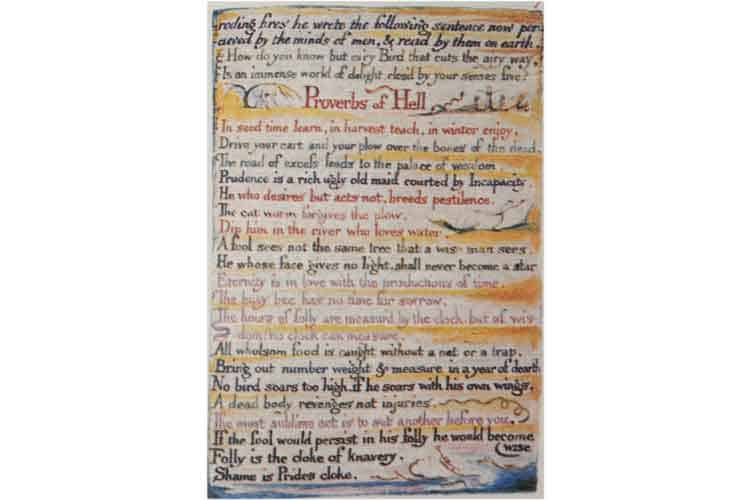 roding fires he wrote the following sentence now per-
cieved by the minds of men, & read by them on earth.
How do you know but ev'ry Bird that cuts the airy way,
Is an immense world of delight, clos'd by your senses five?
Proverbs of Hell
In seed time learn, in harvest teach, in winter enjoy.
Drive your cart and your plow over the bones of the dead.
The road of excess leads to the palace of wisdom.
Prudence is a rich ugly old maid courted by Incapacity.
He who desires but acts not, breeds pestilence.
The cut worm forgives the plow.
Dip him in the river who loves water.
A fool sees not the same tree that a wise man sees.
He whose face gives no light, shall never become a star.
Eternity is in love with the productions of time.
The busy bee has no time for sorrow.
The hours of folly are measur'd by the clock, but of wis-
-dom: no clock can measure.
All wholsom food is caught without a net or a trap.
Bring out number weight & measure in a year of dearth.
No bird soars too high, if he soars with his own wings.
A dead body revenges not injuries.
The most sublime act is to set another before you.
If the fool would persist in his folly he would become
wise
Folly is the cloke of knavery.
Shame is Prides cloke.